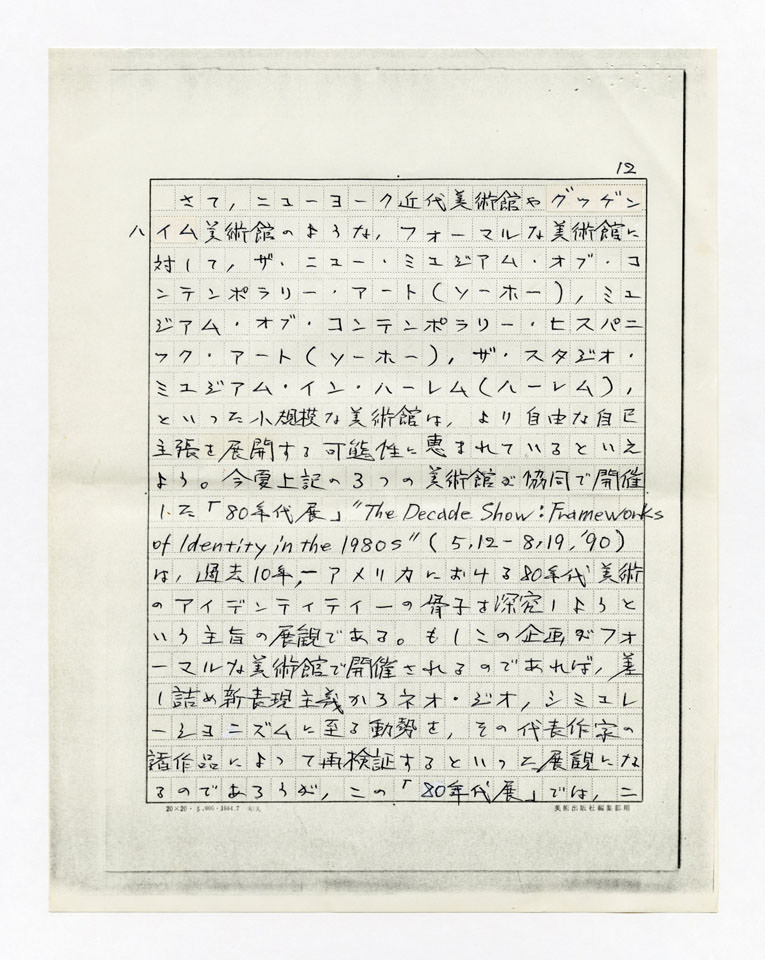 12
さて，ニューヨーク近代美術館やグッゲン
ハイム美術館のような，フォーマルな美術館に
対して，ザ・ニュー・ミュジアム・オブ・コ
ンテンポラリー・アート(ソーホー)，ミュ
ジアム・オブ・コンテンポラリー・ヒスパニ
ック・アート(ソーホー)，ザ・スタジオ・
ミュジアム・イン・ハーレム(ハーレム)，
といった小規模な美術館は，より自由な自己
主張を展開する可能性に恵まれているといえ
よう。今夏上記の3つの美術館が協同で開催
した「80年代展」"The Decade Show: Frameworks
of Identity in the 1980s" (5,12-8,19,'90)
は，過去10年，アメリカにおける80年代美術
のアイデンティティーの骨子を深究しようと
いう主旨の展観である。もしこの企画がフォ
ーマルな美術館で開催されるのであれば，差
し詰め新表現主義からネオ・ジオ，シミュレ
ーショニズムに至る動勢を，その代表作家の
諸作品によって再検証するといった展観にな
るのであろうが，この「80年代展」では，ニ
20×20・5,000・1984.7
美術出版社編集部用